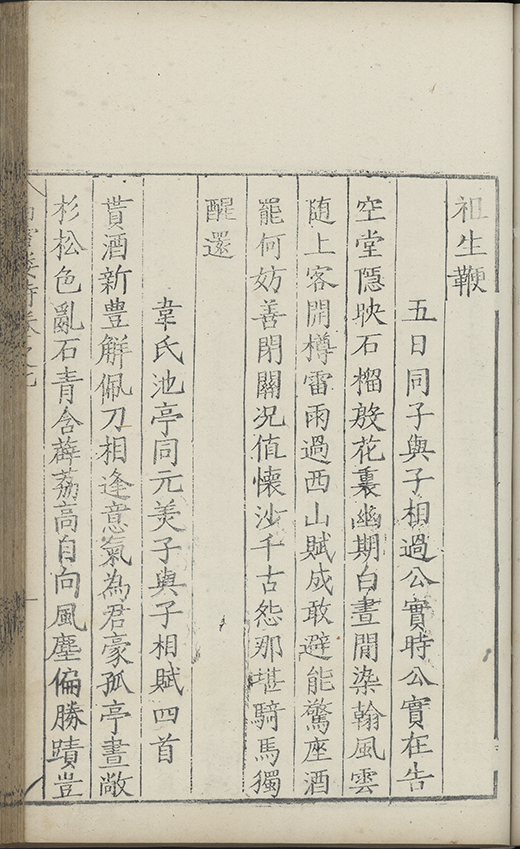 祖生鞭
五日同子與子相過公實時公實在告
空堂隠映石榴殷花裏幽期白晝閒染翰風雲
随上客開樽雷雨過西山賦成敢避能驚座酒
罷何妨善閉關况值懷沙千古怨那堪騎馬獨
醒還
韋氏池亭同元美子與子相賦四首
貰酒新豊解佩刀相逢意氣為君豪孤亭晝敞
杉松色亂石青含薜荔高自向風塵偏勝蹟豈